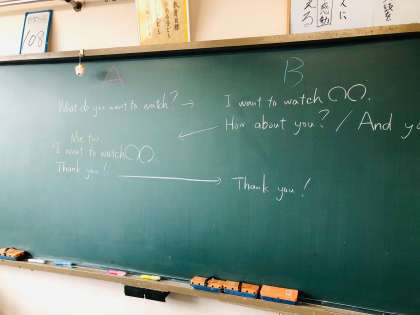 108
A
B
What do you want to watch? →
I want to watch ○○.
How about you? / And yo
Me too.
I want to watch ○○.
Thank you!
Thank you!